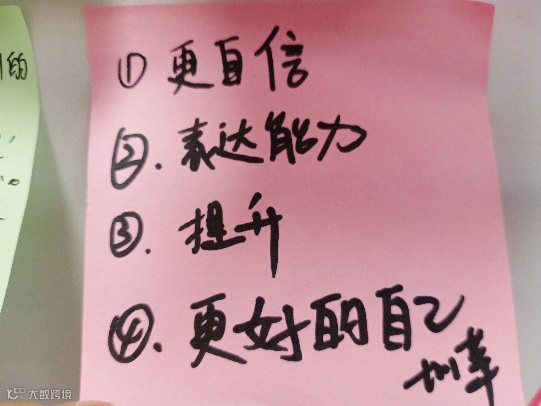 的
① 更自信
②. 表达能力
③. 提升
④. 更好的自己
大数跨境